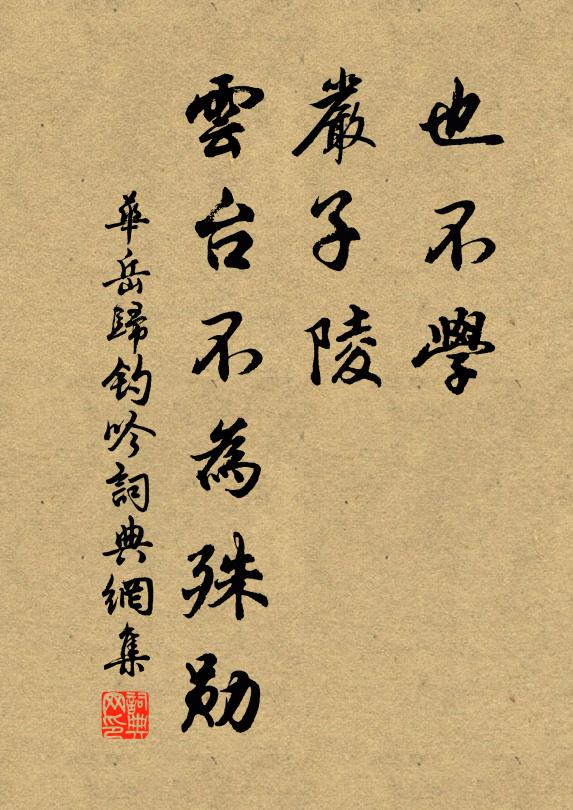 也不學
嚴子陵
雲台不為殊勛
華岳歸釣吟詞典網集
詞典网印